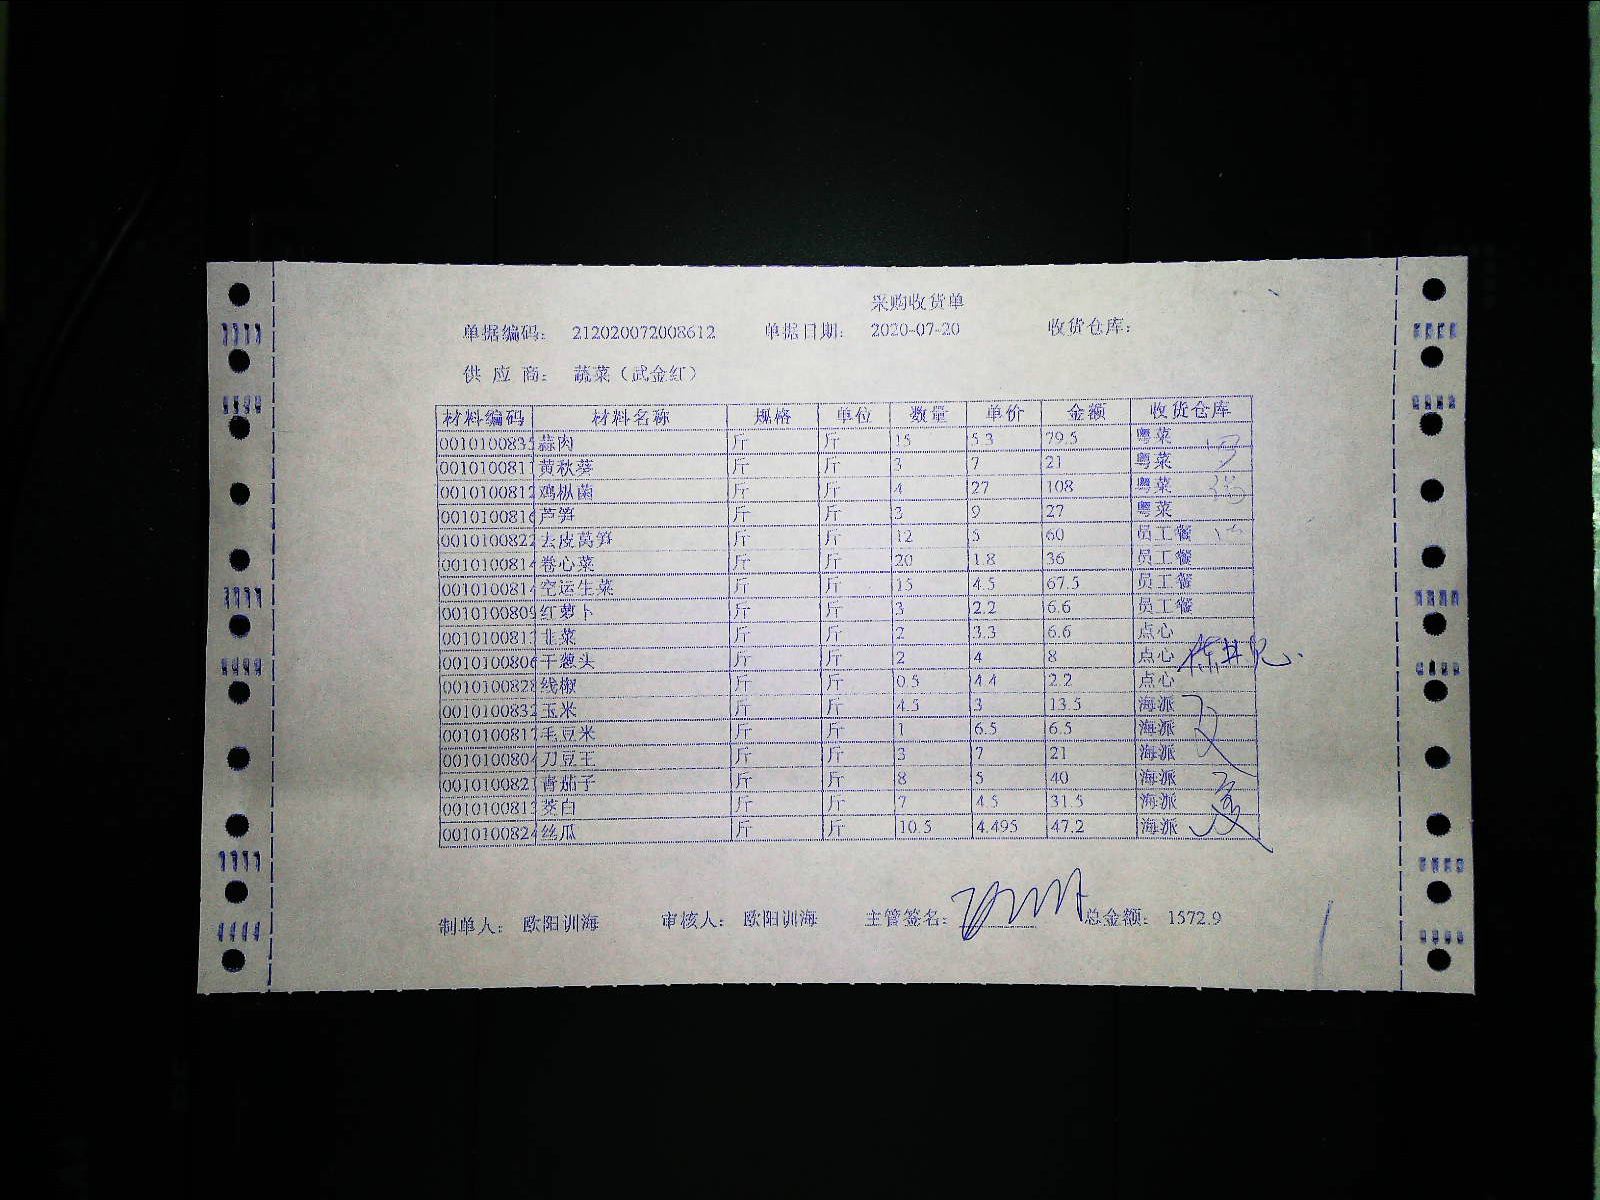 采购收货单
单据编码： 212020072008612 单据日期： 2020-07-20 收货仓库：
供 应 商： 蔬菜（武金红）
材料编码 材料名称 规格 单位 数量 单价 金额 收货仓库
0010100835 蒜肉 斤 斤 15 5.3 79.5 粤菜
0010100811 黄秋葵 斤 斤 3 7 21 粤菜
0010100812 鸡枞菌 斤 斤 4 27 108 粤菜
0010100816 芦笋 斤 斤 3 9 27 粤菜
0010100822 去皮莴笋 斤 斤 12 5 60 员工餐
0010100814 卷心菜 斤 斤 20 1.8 36 员工餐
0010100814 空运生菜 斤 斤 15 4.5 67.5 员工餐
0010100809 红萝卜 斤 斤 3 2.2 6.6 员工餐
0010100813 韭菜 斤 斤 2 3.3 6.6 点心
0010100806 干葱头 斤 斤 2 4 8 点心
0010100828 线椒 斤 斤 0.5 4.4 2.2 点心
0010100832 玉米 斤 斤 4.5 3 13.5 海派
0010100817 毛豆米 斤 斤 1 6.5 6.5 海派
0010100804 刀豆王 斤 斤 3 7 21 海派
0010100821 青茄子 斤 斤 8 5 40 海派
0010100813 茭白 斤 斤 7 4.5 31.5 海派
0010100824 丝瓜 斤 斤 10.5 4.495 47.2 海派
制单人： 欧阳训海 审核人： 欧阳训海 主管签名： 总金额： 1572.9